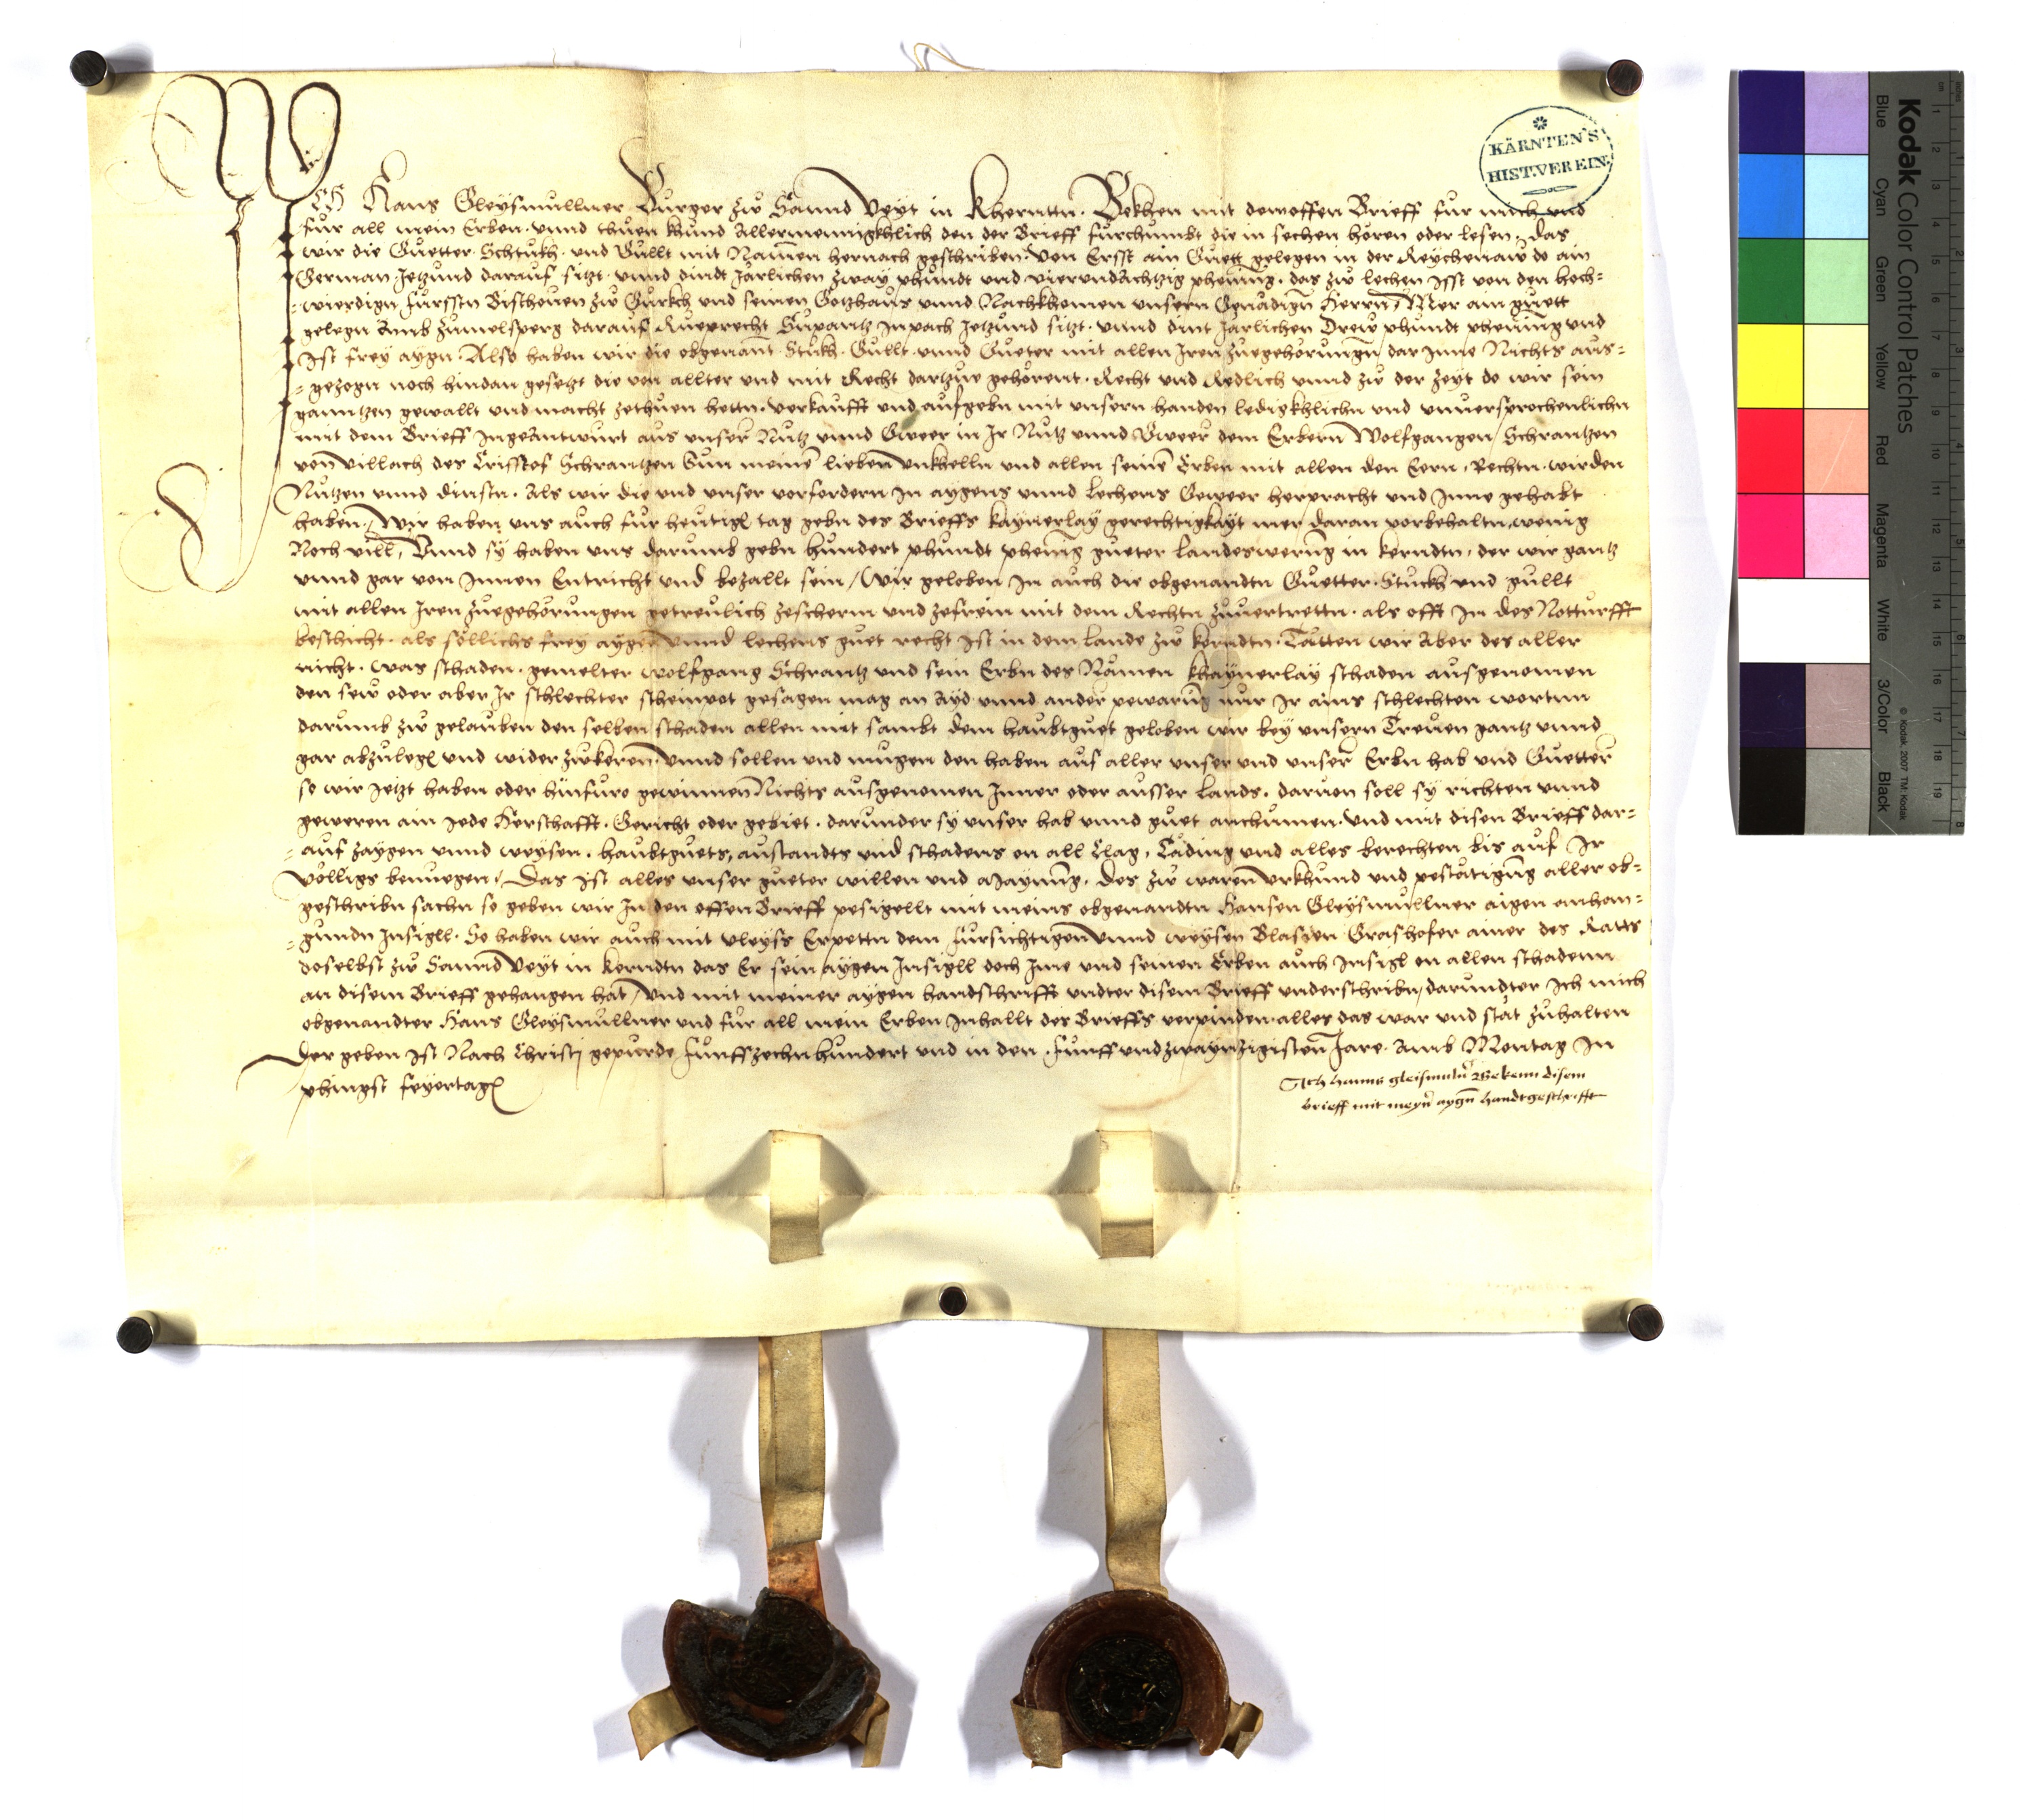 ICH Hans Gleysmullner Burger zw Sannd Veyt in Kherntn. Bekhen mit dem offen Brieff fur mich und
fur all mein Erben. unnd thuen khund Allermenigkhlich den der Brieff furchumbt die in sechen horen oder lesen, Das
wir die Guetter. Schtukh. und Gullt mit Namen hernach geschriben. Von Ersst ain Guett gelegen in der Reychenaw do ain
German Jetzund darauf sitzt. unnd dindt Jarlichen zway phundt und vierundachtzig phening. das zw lechen Isst von den hoch=
=wierdign furssten Bischoven zw Gurkh und seinen Gotzhaus unnd Nachkhomen unsern Genadign Herrn, Mer ain guett
gelegn Amb Zumelsperg darauf Rueprecht Supantz Inpach Jetzund sitzt. unnd dint Jarlichen Drew phundt phening und
Ist frey aygn. Also haben wir die obgenant. Stukh. Gullt. unnd Gueter mit allen Iren zuegehorungn, dar Inne Nichts aus=
=gezogn noch hindan gesetzt die von allter und mit Recht dartzue gehorent. Recht und Redlich unnd zw der zeyt do wir sein
ganntzen gewallt und macht zethuen hettn. verkaufft und aufgebn mit unsern handen ledigkhlichn und unversprochenlichn
mit dem Brieff Ingeantwurt aus unser Nutz unnd Gweer in Ir Nutz unnd Gweer dem Erbern Wolfgangen Schrantzen
von villach des Cristtof Schrantzen Sun meinem lieben unkhelln und allen seinen Erben mit allen den Eern, Rechtn. wirden
Nutzen unnd dinstn. Als wir die und unser vorfordern in aygens unnd lechens Geweer herpracht und Inne gehabt
haben. Wir haben uns auch fur heutign tag gebn des Brieffs kaynerlay gerechtigkayt mer daran vorbehaltn, wenig
Noch vill, Unnd sy haben uns darumb gebn hundert phundt phening gueter landeswerung in kerndtn, der wir gantz
unnd gar von Innen Entricht und bezallt sein, Wir geloben In auch die obgenandtn Guetter. Stuckh und gullt
mit allen Iren zuegehorungen getreulich zescherm und zefreyn mit dem Rechtn zuvertrettn. als offt In des Notturfft
beschicht. als sollichs frey aygen unnd lechens guet recht ist in dem lande zw kerndtn. Tatten wir Aber des aller
nicht. was schaden. gemelter wolfgang Schrantz und sein Erbn des Namen khaynerlay schaden ausgenomen
den sew oder aber Ir schlechter scheinpot gesagen mag an Ayd unnd ander pewarung nur Ir ains schlechten wortnn
darumb zw gelauben den selben schaden allen mit sambt dem haubtguet geloben wir bey unsern Treuen gantz unnd
gar abzulegn und wider zwkeren. Unnd sollen und mugen den haben auf aller unser und unser Erbn hab und Guetter
so wir Jetzt haben oder hinfuro gewinnen Nichts ausgenomen Inner oder ausser Lands. darvon soll sy richten unnd
geweren ain Jede Herschafft. Gericht oder gebiet. darunder sy unser hab unnd guet anchumen. und mit disen Brieff dar=
=auf zaygen unnd weysen. haubtguets, austandts und schadens on all Clag, Tading und alles berechten bis auf Ir
volligs benuegen, Das ist alles unser gueter willen und maynung. Des zw waren Urkhund und pestatigung aller ob=
geschribn sachn so geben wir In den offen Brieff pesigellt mit meins obgenandtn Hansen Gleysmullner aigen anhan=
=gundn Insigll. So haben wir auch mit vleyss Erpettn dem fursichtigen unnd weysen Blasien Graishofer ainer des Ratts
doselbst zw Sannd Veyt in kerndtn das Er sein aygen Insigll doch Ime und seinen Erben auch Insigl on allen schadenn
an disem Brieff gehangen hat, Und mit meiner aygen handschrifft undter disem Brieff underschribn, darundter Ich mich
obgenandter Hans Gleysmullner und fur all mein Erben Inhallt des Brieffs verpinden. alles das war und stat zuhalten
Der geben ist Nach Christj gepurde funffzechnhundert und in den. funffundzwaynzigisten Jare. Amb Montag In
phingst feyrtagn
Ich hanns gleismuln Bekenn disem
brieff mit meyn aygn handtgeschrifft
KÄRNTEN'S
HIST. VEREIN.
Kodak Color Control Patches
© Kodak, 2007 TM: Kodak
Blue Cyan Green Yellow Red Magenta White 3/Color Black